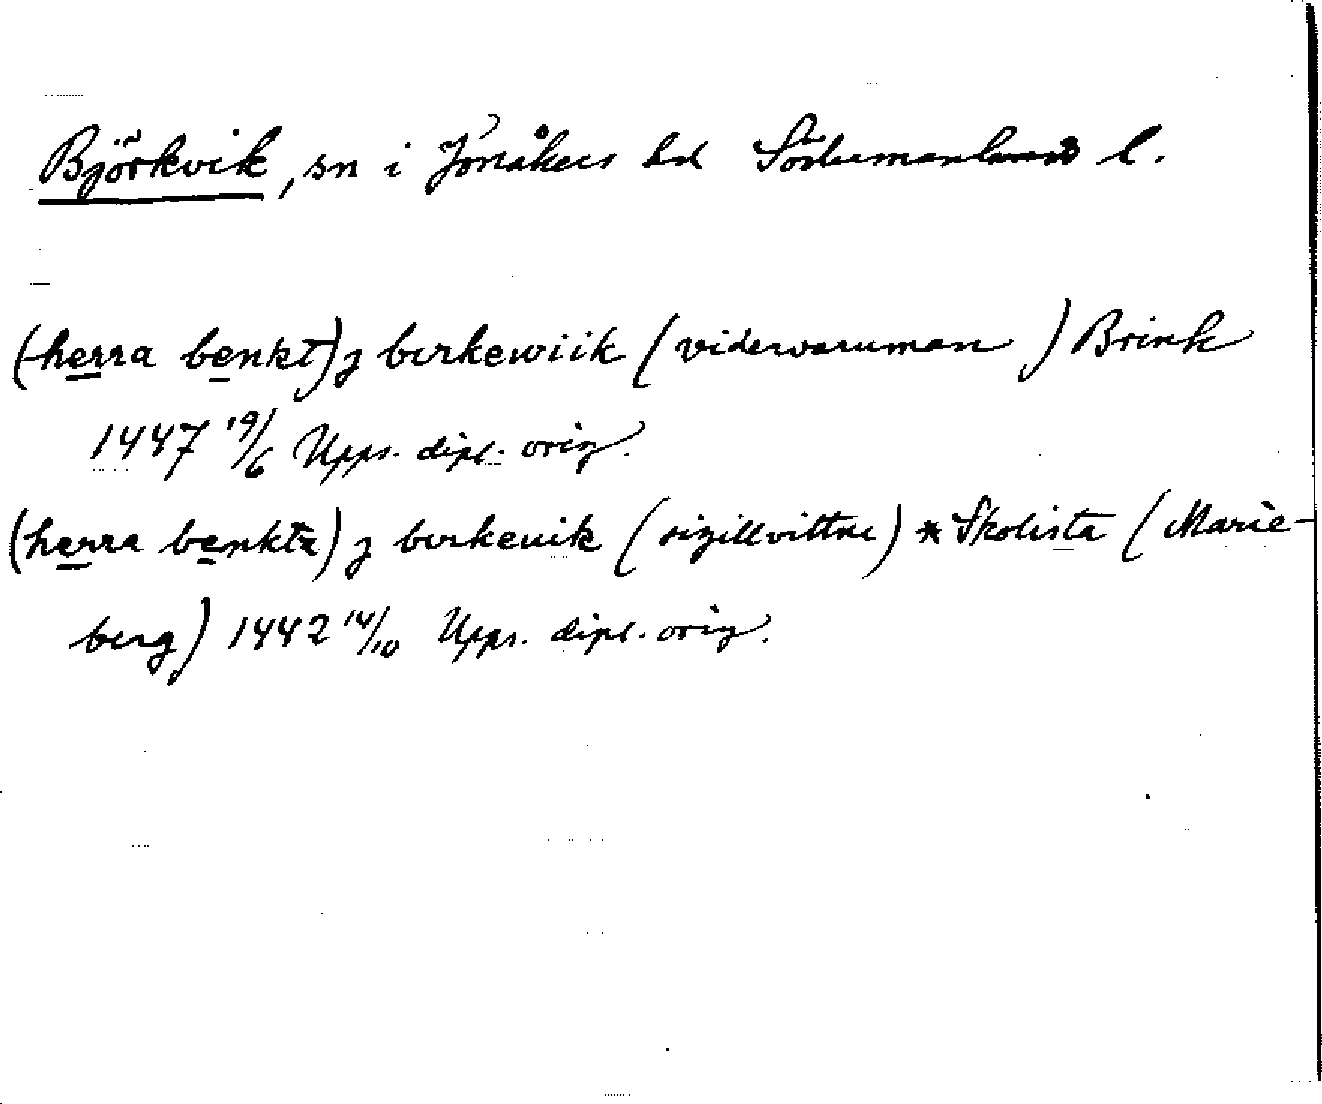 Björkvik, sn i Jönåkers hd Södermanlands l.
(herra benkt) j birkewiik (vidervaruman) Brink
1447 19/6 Upps. dipl. orig.
(herra benkta) j birkeuik (sigillvittne) * Skolista (Marie-
berg) 1442 14/10 Upps. dipl. orig.